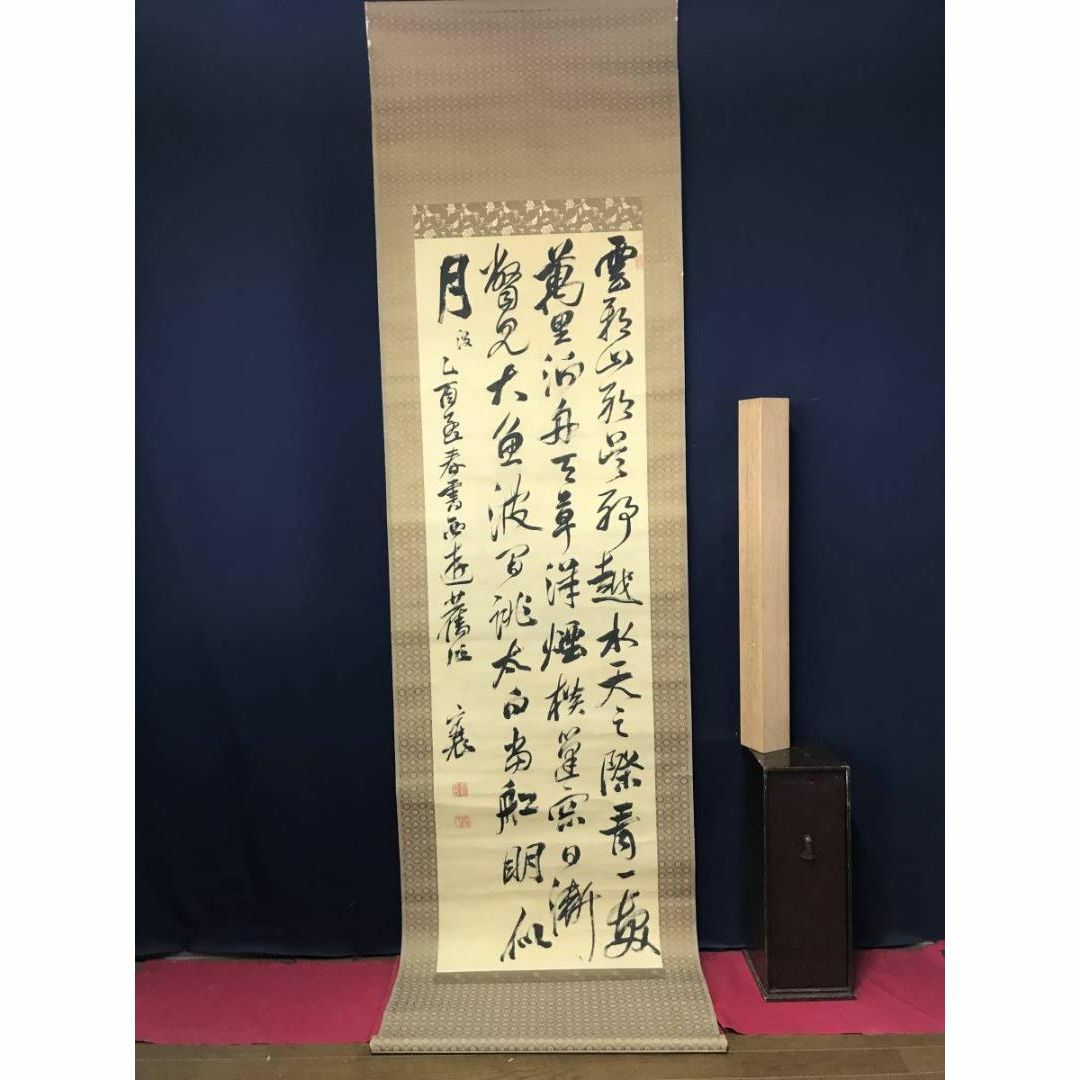 雲耶山耶呉耶越水天之際青一髪
萬里泊舟天草洋煙横篷窓日漸
瞥見大魚波間跳太白當船明似
月 没 乙酉春書西遊舊作 襄